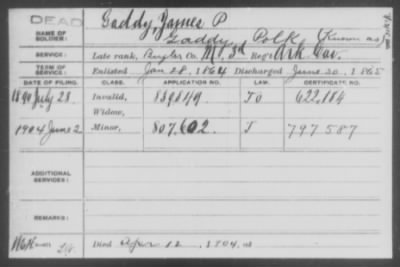 DEAD
NAME OF SOLDIER: Gaddy, James P
Gaddy, Polk, (Known as)
SERVICE: Late rank, Bugler Co. M, 3d Reg't Ark. Cav.
TERM OF SERVICE: Enlisted Jan 28, 1864 Discharged June 30, 1865
DATE OF FILING. CLASS. APPLICATION NO. LAW. CERTIFICATE NO.
1890 July 28 Invalid, 839649 622,184
Widow,
1904 June 2 Minor, 807.602 797587
ADDITIONAL SERVICES:
REMARKS:
Died Apr 12, 1904, at